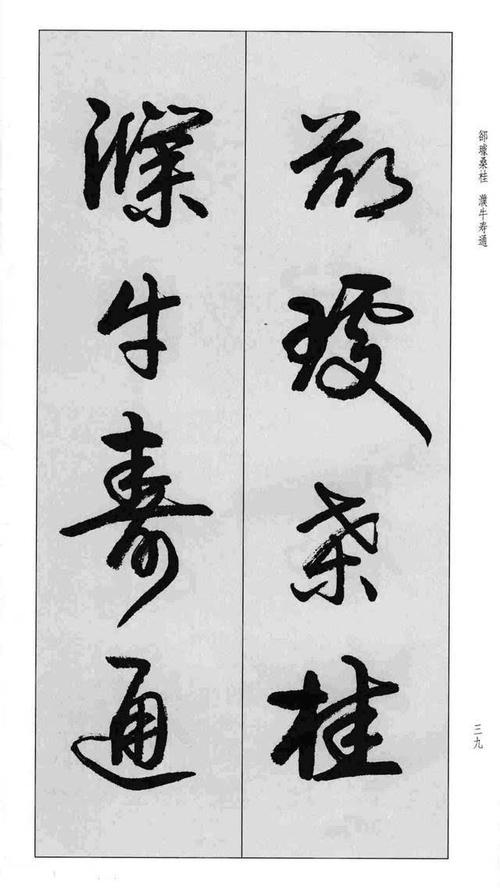 郤璩桑桂 濮牛寿通
郤璩桑桂
濮牛寿通
三九